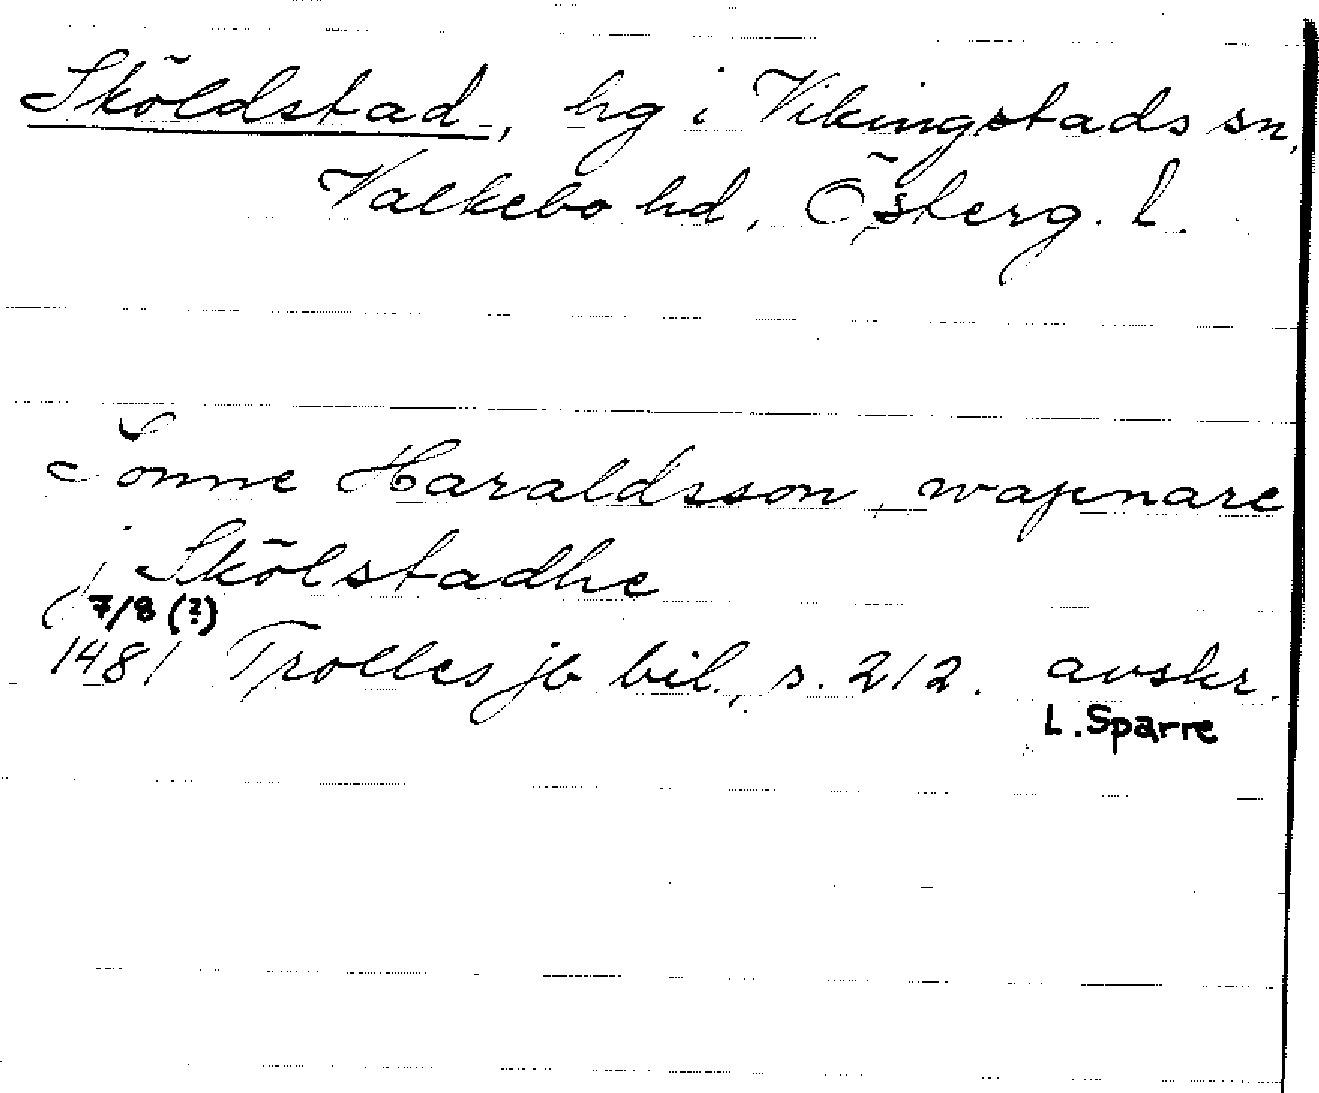 Sköldstad, hg i Vikingstads sn,
Valkebo hd, Österg. l.
Sonne Haraldsson, wapnare
j Skölstadhe
7/8 (?)
1481 Trolles jb bil., s. 212. avskr.
L. Sparre